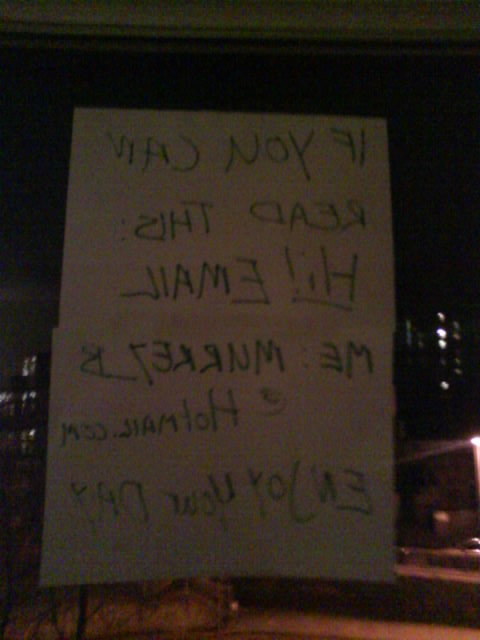 IF YOU CAN
READ THIS:
Hi! EMAIL
ME:
@ HOTMAIL.COM
ENJOY YOUR DAY